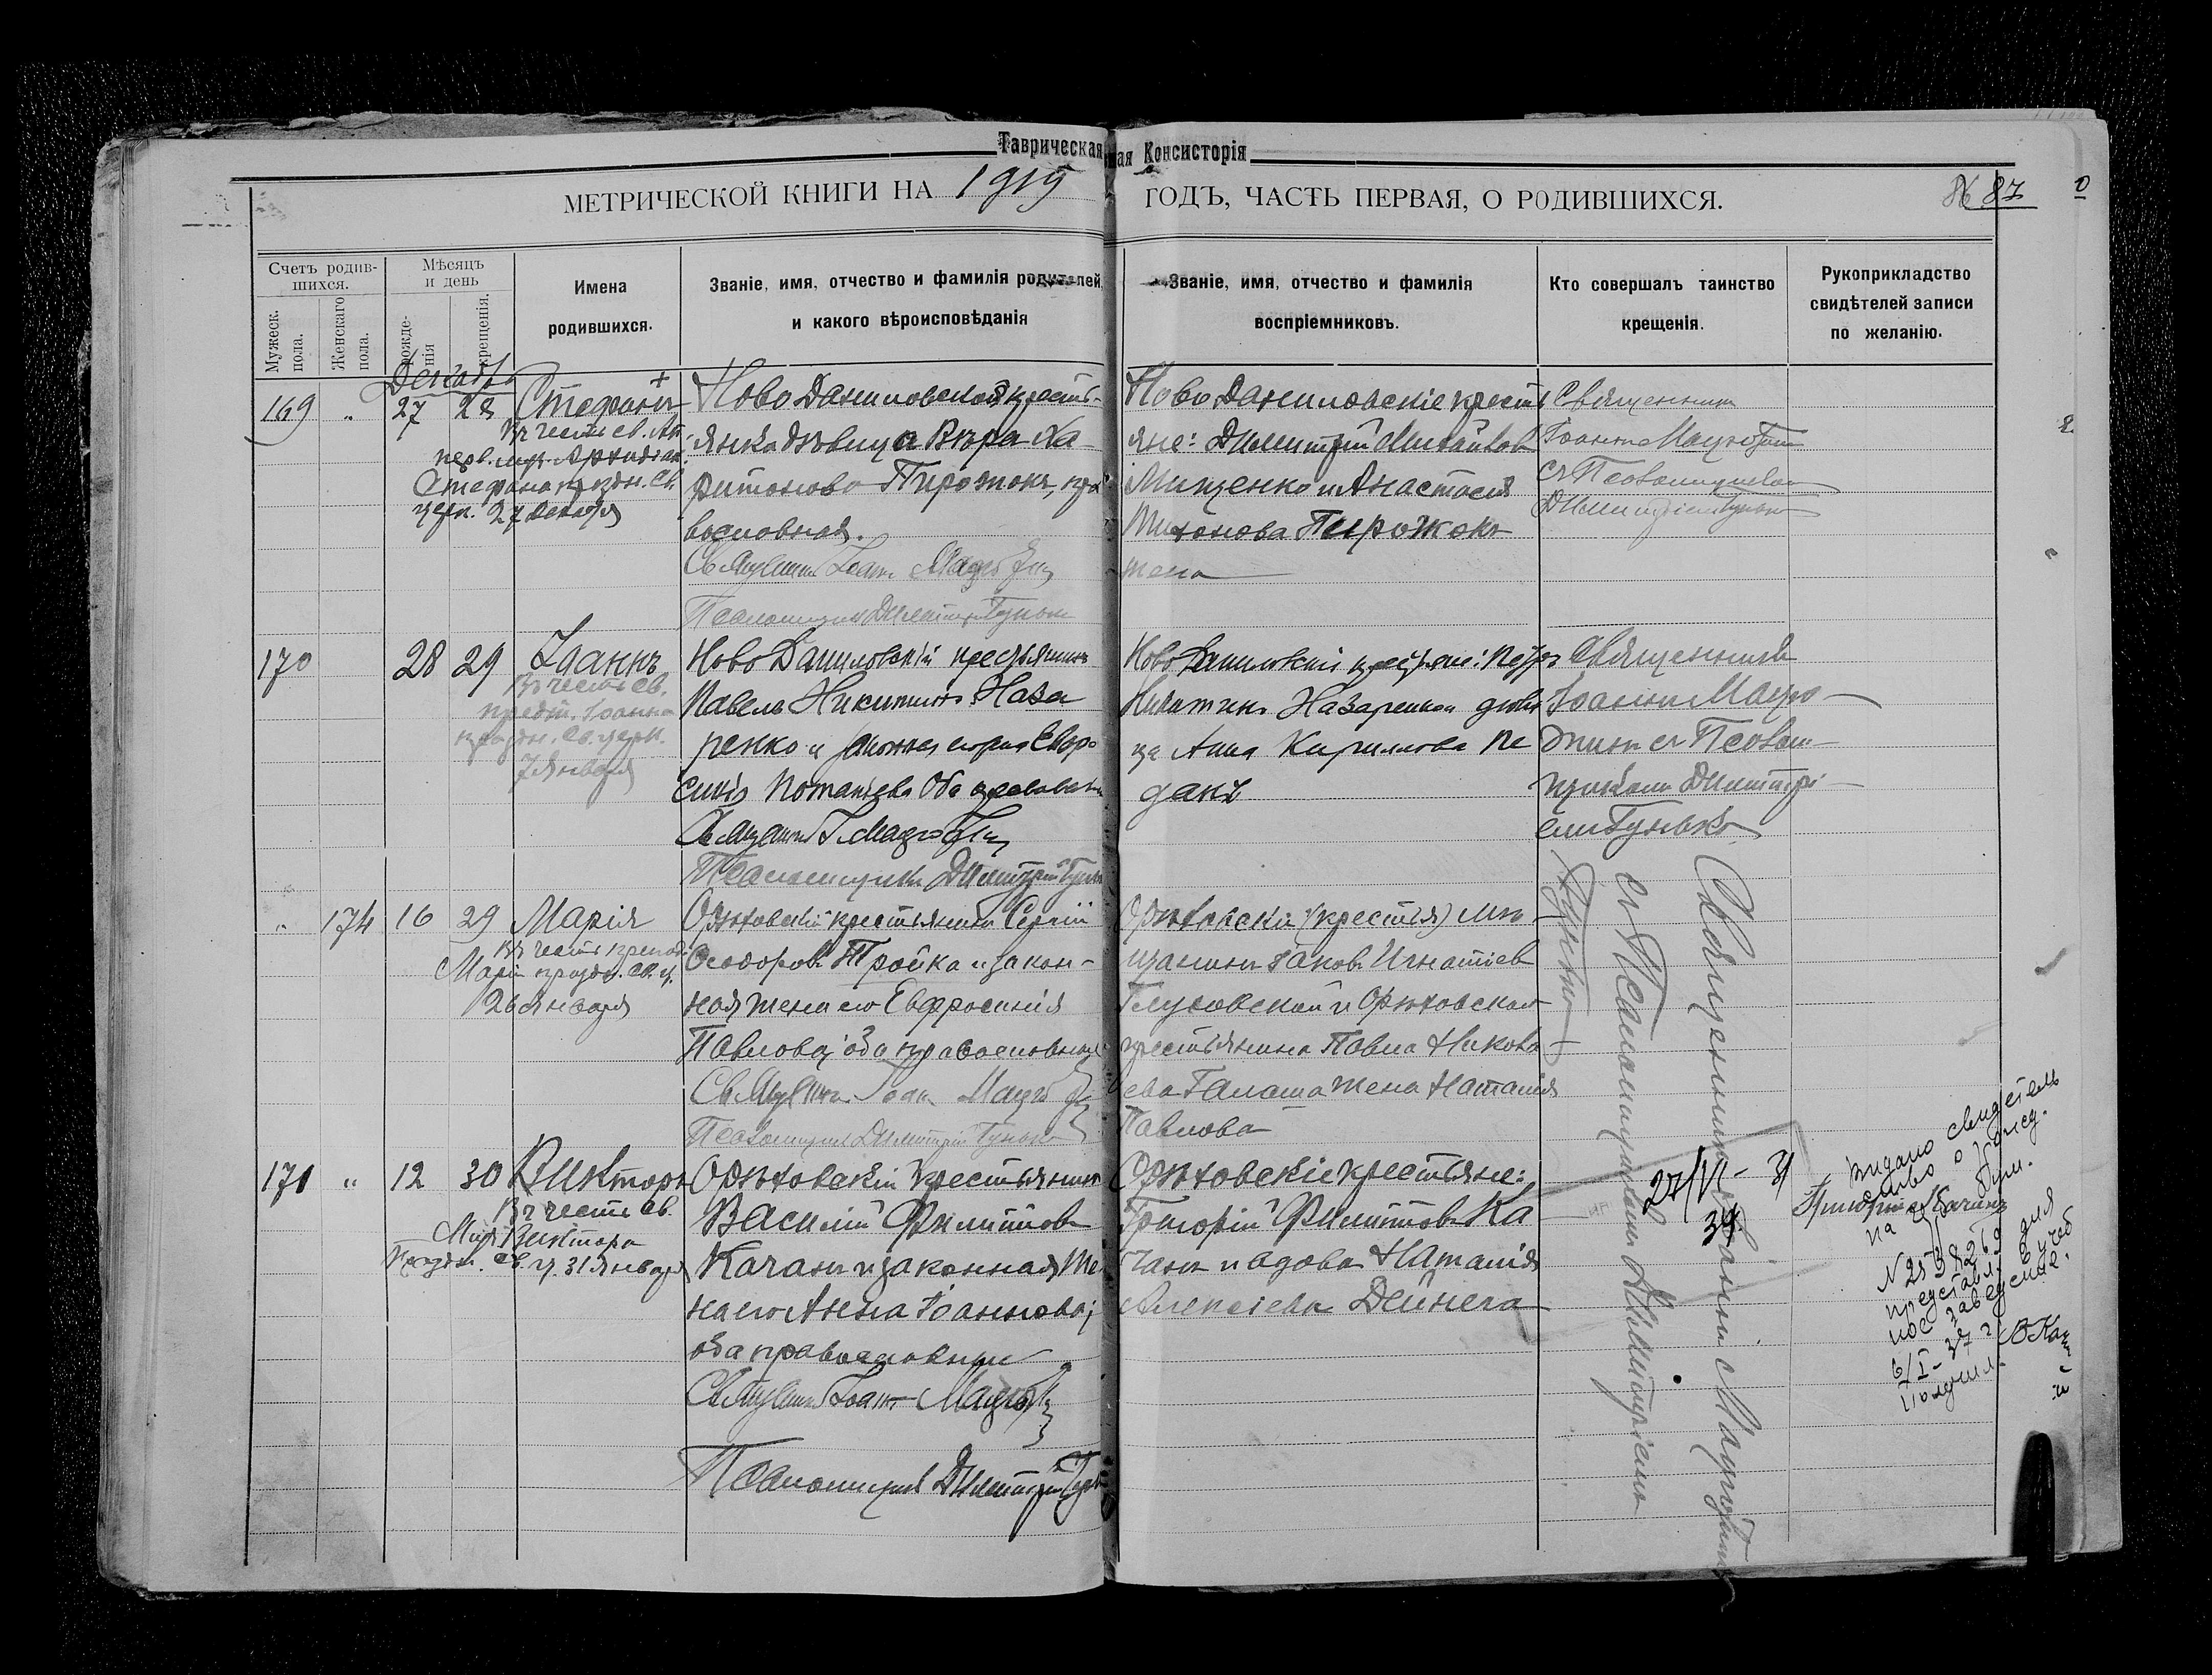 Таврическая
ная Консисторія
МЕТРИЧЕСКОЙ КНИГИ НА 1919
ГОДЪ, ЧАСТЬ ПЕРВАЯ, О РОДИВШИХСЯ.
87
Счетъ родив-
шихся.
Мужеск.
пола.
Женскаго
пола.
Мѣсяцъ
и день
рожде-
нія
крещенія.
Имена
родившихся.
Званіе, имя, отчество и фамилія родителей,
и какого вѣроисповѣданія
Званіе, имя, отчество и фамилія
воспріемниковъ.
Кто совершалъ таинство
крещенія.
Рукоприкладство
свидѣтелей записи
по желанію.
Декабрь
169 " 27 28 Стефанъ
Въ честь св.
Стефана праздн. св.
церк. 27 декабря
Ново Даниловская кресть-
янка дѣвица Вѣра Ха-
ритонова Пирожокъ, пра
вославная.
Священникъ Іоаннъ
Псаломщикъ Димитрій Гунько
Ново Даниловскіе кресть
яне: Димитрій Михайловъ
Мищенко и Анастасія
Пирожокъ
жена
Священникъ
Іоаннъ
съ Псаломщикомъ
Димитріемъ Гунько
170 28 29 Іоаннъ
Въ честь св.
предт. Іоанна
праздн. св. церк.
7 января
Ново Даниловскій крестьянинъ
Павелъ Никитинъ Наза
ренко и законная жена его Евфро
синія Потапіева Оба православн
Псаломщикъ Димитрій Гунько
Ново Даниловскіе крестьяне: Петръ
Никитинъ Назаренко и дѣви
ца Анна Кирилова Пе
дакъ
Священникъ
Іоаннъ
съ Псалом-
щикомъ Димитрі-
емъ Гунько
" 174 16 29 Марія
Въ честь препод.
Маріи праздн. св. ц.
26 января
Орѣховскій крестьянинъ Сергій
Ѳеодоровъ Тройка и закон-
ная жена его Евфросинія
Павлова; оба православные
Псаломщикъ Димитрій Гунько
Орѣховскій (крестья) мѣ-
щанинъ Іаковъ Игнатіевъ
Глуховской и Орѣховскаго
крестьянина Павла Никола-
ева Галата жена Наталія
Павлова
171 " 12 30 Викторъ
Въ честь св.
Муч. Виктора
праздн. св. ц. 31 января
Орѣховскій крестьянинъ
Василій Филипповъ
Качанъ и законная же
на его Анна Іоаннова;
оба православные
Псаломщикъ Димитрій Гунько
Орѣховскіе крестьяне:
Григорій Филипповъ Ка
чанъ и вдова Наталія
Алексіева Дейнега
Священникъ Іоаннъ
съ Псаломщикомъ Димитріемъ
Гунько
27/VI - 31
34
Видано свидетель
ство о рожд.
на
N 258269 для
представл. в учеб
ное заведение.
6/I - 37 г.
Получил